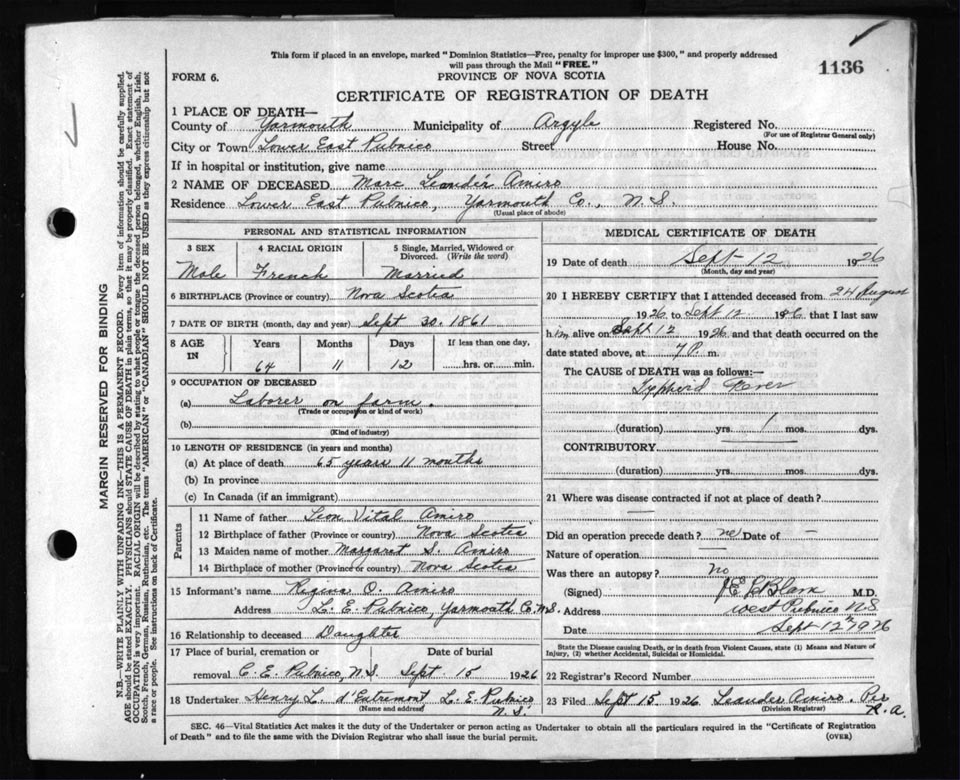 This form if placed in an envelope, marked "Dominion Statistics—Free, penalty for improper use $300," and properly addressed
will pass through the Mail "FREE."
1136
FORM 6.
PROVINCE OF NOVA SCOTIA
CERTIFICATE OF REGISTRATION OF DEATH
1 PLACE OF DEATH—
County of Yarmouth Municipality of Argyle Registered No.
(For use of Registrar General only)
City or Town Lower East Pubnico Street House No.
If in hospital or institution, give name
2 NAME OF DECEASED Marc Leander Amiro
Residence Lower East Pubnico, Yarmouth Co., N.S.
(Usual place of abode)
PERSONAL AND STATISTICAL INFORMATION
3 SEX 4 RACIAL ORIGIN 5 Single, Married, Widowed or
Divorced. (Write the word)
Male French Married
6 BIRTHPLACE (Province or country) Nova Scotia
7 DATE OF BIRTH (month, day and year) Sept 30. 1861
8 AGE
IN
Years Months Days If less than one day,
64 11 12 hrs. or min.
9 OCCUPATION OF DECEASED
(a) Laborer on farm.
(Trade or occupation or kind of work)
(b)
(Kind of industry)
10 LENGTH OF RESIDENCE (in years and months)
(a) At place of death 65 years 11 months
(b) In province
(c) In Canada (if an immigrant)
Parents
11 Name of father Leon Vital Amiro
12 Birthplace of father (Province or country) Nova Scotia
13 Maiden name of mother Margaret S. Amiro
14 Birthplace of mother (Province or country) Nova Scotia
15 Informant's name Regina O. Amiro
Address L. E. Pubnico, Yarmouth Co. N.S.
16 Relationship to deceased Daughter
17 Place of burial, cremation or Date of burial
removal C. E. Pubnico, N.S. Sept. 15 1926
18 Undertaker Henry L. d'Entremont L. E. Pubnico
N.S.
(Name and address)
MEDICAL CERTIFICATE OF DEATH
19 Date of death Sept 12 1926
(Month, day and year)
20 I HEREBY CERTIFY that I attended deceased from 24 August
1926 to Sept 12 1926 that I last saw
him alive on Sept 12 1926 and that death occurred on the
date stated above, at 7 P. m.
The CAUSE of DEATH was as follows:—
Typhoid Fever
(duration) yrs. 1 mos. dys.
CONTRIBUTORY.
(duration) yrs. mos. dys.
21 Where was disease contracted if not at place of death?
Did an operation precede death? no Date of —
Nature of operation
Was there an autopsy? no
(Signed) M.D.
Address West Pubnico N.S
Date Sept 12th 1926
State the Disease causing Death, or in death from Violent Causes, state (1) Means and Nature of
Injury, (2) whether Accidental, Suicidal or Homicidal.
22 Registrar's Record Number
23 Filed Sept 15 1926 Leander Amiro. Per
R. A.
(Division Registrar)
SEC. 46—Vital Statistics Act makes it the duty of the Undertaker or person acting as Undertaker to obtain all the particulars required in the "Certificate of Registration
of Death" and to file the same with the Division Registrar who shall issue the burial permit.
(OVER)
MARGIN RESERVED FOR BINDING
N.B.—WRITE PLAINLY WITH UNFADING INK—THIS IS A PERMANENT RECORD. Every item of information should be carefully supplied.
AGE should be stated EXACTLY. PHYSICIANS should STATE CAUSE OF DEATH in plain terms, so that it may be properly classified. Exact statement of
OCCUPATION is very important. RACIAL ORIGIN will be described by stating to what people or tongue the deceased person belonged, whether English, Irish,
Scotch, French, German, Russian, Ruthenian, etc. The terms "AMERICAN" or "CANADIAN" SHOULD NOT BE USED as they express citizenship but not
a race or people. See instructions on back of Certificate.